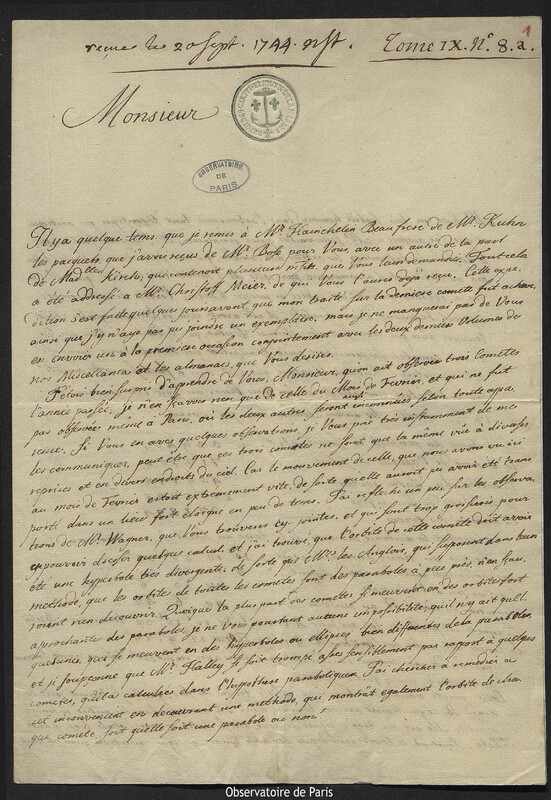 reçue le 20 Sept. 1744. nst.
Tome IX. N.° 8.a.
1
Monsieur
OBSERVATOIRE
DE
PARIS
Il y a quelque tems que je remis à Mr. Beaufrere de Mr. Kuhn
les pacquets, que j'avois reçus de Mr. Bose pour Vous, avec un autre de la part
de Madlles Kirch, que contenoit plusieurs msts, que Vous leur demandiés. Tout cela
a été addressé à Mr. Christoff Meier, de qui Vous l'aurés deja reçu. Cette expe-
dition s'est faite quelques jours avant, que mon traité sur la derniere comete fut achevé,
ainsi que j'y n'aye pas pu joindre un exemplaire, mais je ne manquerai pas de Vous
en envoier un à la premiere occasion conjointement avec les deux derniers Volumes de
nos Miscellanea et les almanacs, que Vous desirés.
J'etois bien surpris d'aprendre de Vous, Monsieur, qu'on ait observé trois Cometes
l'année passée, je n'en savois rien que de celle du Mois de Fevrier, et qui ne fut
pas observée meme à Paris, où les deux autres seront aussi inconnües selon toute appa-
rence. Si Vous en avés quelques observations, je Vous prie très instamment de me
les communiquer, peut être que ces trois cometes ne sont que la même vüe à diverses
reprises et en divers endroits du ciel. Car le mouvement de celle, que nous avons vu ici
au mois de Fevrier estoit extremement vite, de sorte qu'elle auroit pu avoir été trans-
porté dans un lieu fort éloigné en peu de tems. J'ai reflechi un peu sur les observa-
tions de Mr. Wagner, que Vous trouverés cy-jointes, et qui sont trop grossieres pour
en pouvoir dresser quelque calcul, et j'ai trouvé, que l'orbite de cette comete doit avoir
été une hyperbole très divergente, de sorte que Mrs. les Anglois, qui supposent dans leur
methode, que les orbites de toutes les cometes sont des paraboles à peu près, n'en sau-
roient rien decouvrir. Quoique la plus part des cometes se meuvent en des orbites fort
approchantes des paraboles, je ne vois pourtant aucune impossibilité, qu'il n'y ait quel-
quesunes, qui se meuvent en des hyperboles ou ellipses bien differentes de la parabole,
et je soupçonne que Mr. Halley se soit trompé assés sensiblement par rapport à quelques
cometes, qu'il a calculées dans l'hypothese parabolique. J'ai cherché à remedier à
cet inconvenient en decouvrant une methode, qui montrât egalement l'orbite de cha-
que comete, soit qu'elle soit une parabole ou non.
Observatoire de Paris